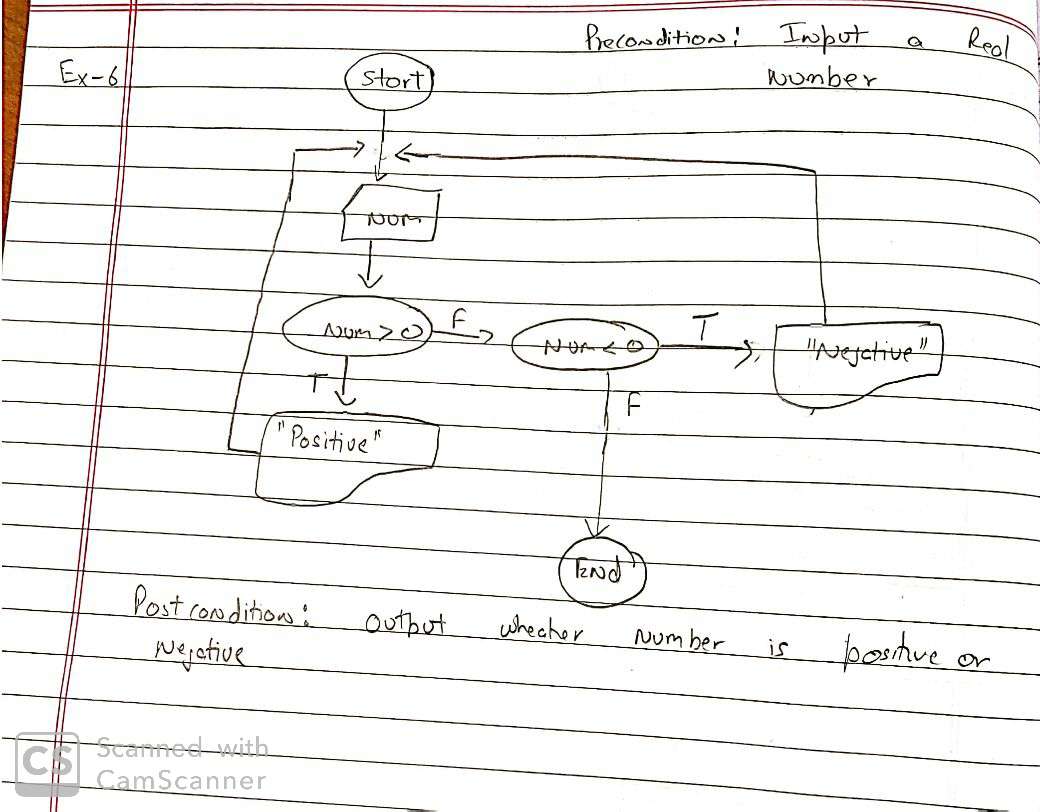 Precondition: Input a Real
Ex-6 Start Number
Num
Num > 0 F Num < 0 T "Negative"
T F
"Positive"
End
Postcondition: output wheather Number is positive or
Negative
CS Scanned with
CamScanner